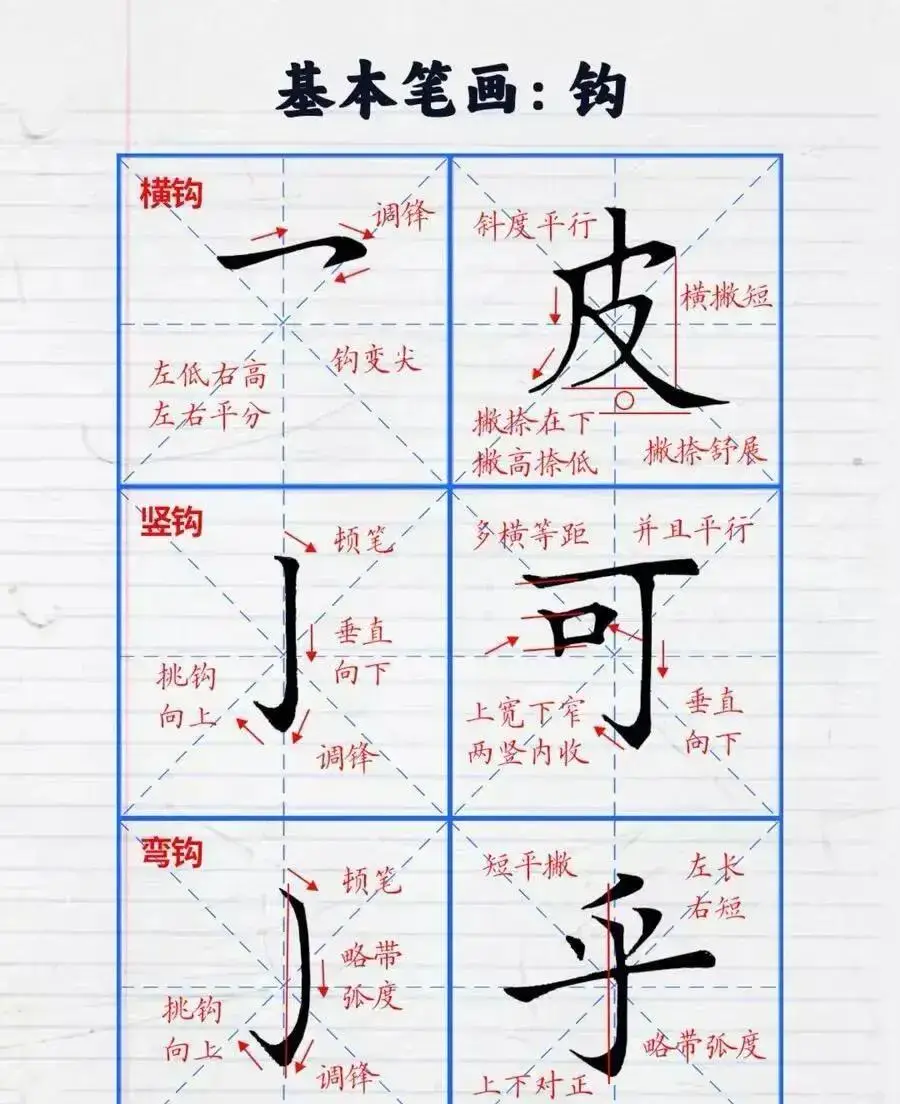 基本笔画：钩
横钩
调锋
左低右高
左右平分
钩变尖
斜度平行
皮
横撇短
撇捺在下
撇高捺低
撇捺舒展
竖钩
顿笔
垂直
向下
挑钩
向上
调锋
多横等距
并且平行
可
上宽下窄
两竖内收
垂直
向下
弯钩
顿笔
略带
弧度
挑钩
向上
调锋
短平撇
左长
右短
乎
略带弧度
上下对正